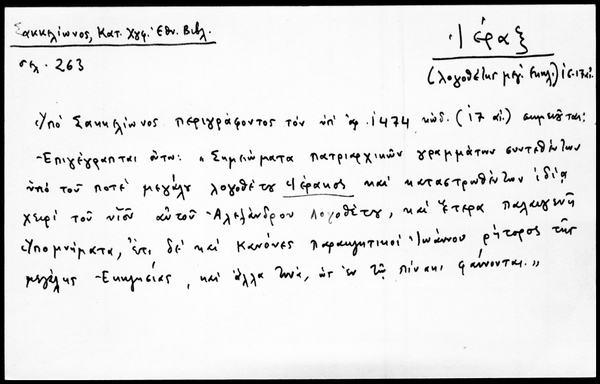 Σακκελίωνος, Κατ. Χγφ. Ἐθν. Βιβλ.
σελ. 263
Ἱέραξ
(λογοθέτης μεγ. Ἐκκλ.) 16-17 αἰ.
Ὑπὸ Σακκελίωνος περιγράφοντος τὸν ὑπ' ἀρ. 1474 κώδ. (17 αἰ.) σημειοῦται:
Ἐπιγέγραπται οὕτω: "Σημειώματα πατριαρχικῶν γραμμάτων συντεθέντων
ὑπὸ τοῦ ποτὲ μεγάλου λογοθέτου Ἱέρακος καὶ καταστρωθέντων ἰδίᾳ
χειρὶ τοῦ υἱοῦ αὐτοῦ Ἀλεξάνδρου Λογοθέτου, καὶ ἕτερα παλαιγενῆ
ὑπομνήματα, ἔτι δὲ καὶ κανόνες παρακλητικοὶ Ἰωάννου ῥήτορος τῆς
μεγάλης Ἐκκλησίας, καὶ ἄλλα τινά, ὡς ἐν τῷ πίνακι φαίνονται."